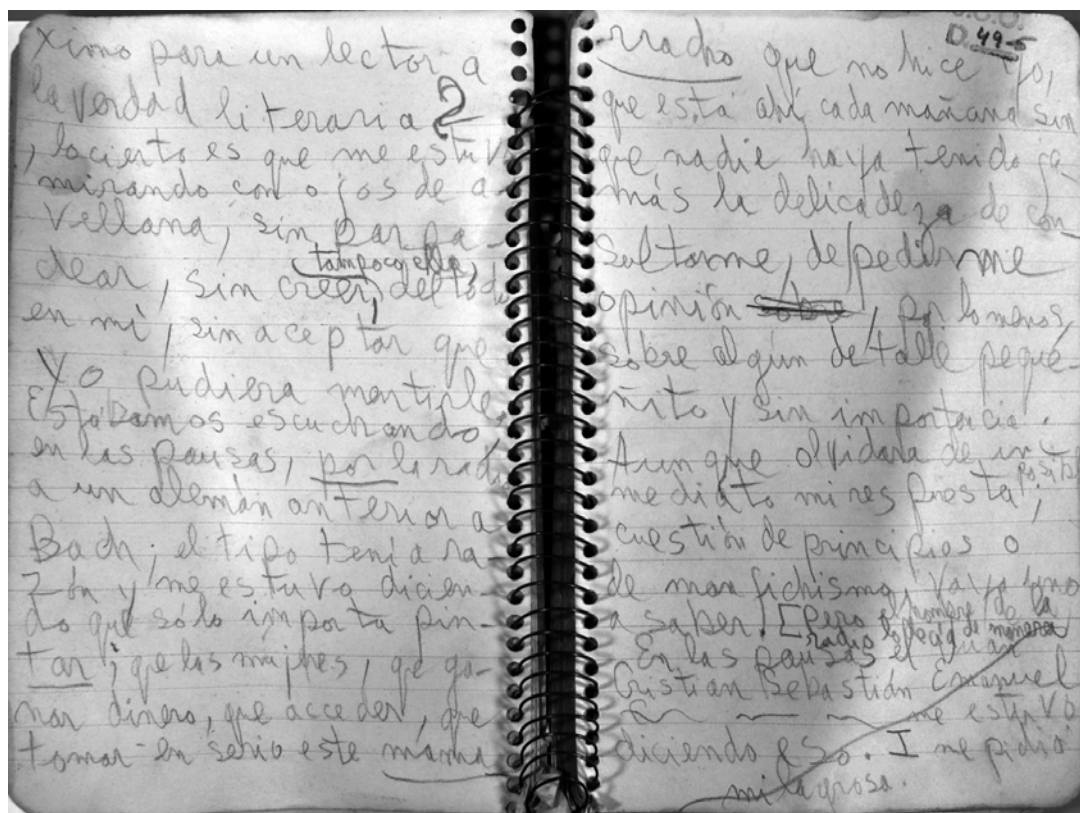 ximo para un lector a
la verdad literaria 2
, lo cierto es que me estuvo
mirando con ojos de a-
vellana, sin parpa-
dear, sin creer, tampoco ella, del todo
en mí, sin aceptar que
yo pudiera mentirle.
Estábamos escuchando
en las pausas, por la radio
a un alemán anterior a
Bach; el tipo tenía ra-
zón y me estuvo dicien-
do que sólo importa pin-
tar; que las mujeres, que ga-
nar dinero, que acceder, que
tomar en serio este mama
D. 49-5
rracho que no hice yo,
que está ahí cada mañana sin
que nadie haya tenido ja-
más la delicadeza de con-
sultarme, de pedirme
opinión sobre, por lo menos,
sobre algún detalle peque-
ñito y sin importacia.
Aunque olvidara de in-
mediato mi respuesta,
cuestión de principios o
de manfichismo, vaya uno
a saber. [Pero el hombre de la
radio
En las pausas el
Cristian Sebastián Emanuel
me estuvo
diciendo eso. I me pidió
milagrosa.